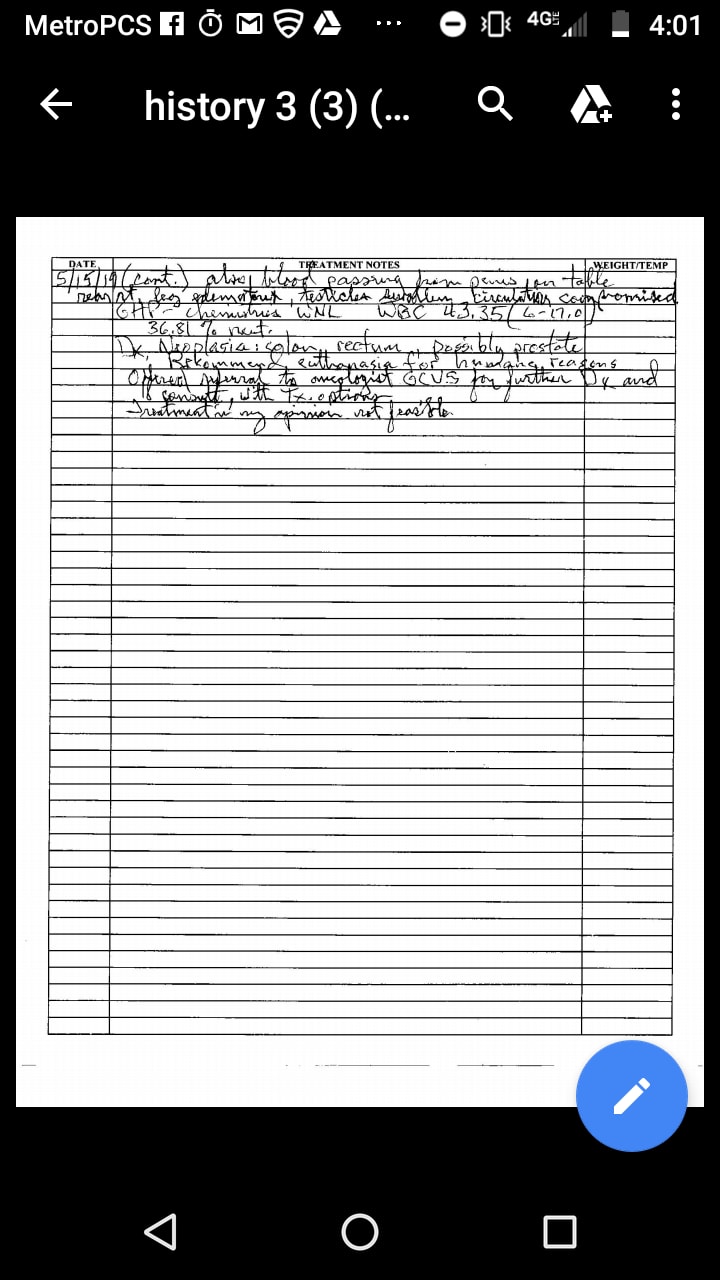 MetroPCS ... 4G LTE 4:01
history 3 (3) (...
DATE TREATMENT NOTES WEIGHT/TEMP
5/15/19 (cont.) also, blood passing from penis on table
rear rt. leg edematous, testicles swollen, circulation compromised
GHP - chemistries WNL WBC 43.35 (6-17.0)
36.81 % neut.
Dx, Neoplasia: colon, rectum, possibly prostate
Rekommend euthanasia for humane reasons
Offered referral to oncologist GCVS for further Dx and
consult, with Tx. options
Treatment in my opinion not feasible.